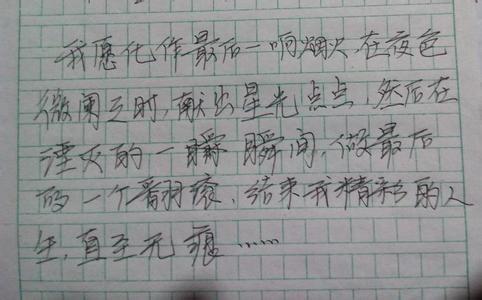 我愿化作最后一响烟火.在夜色
微阑之时,献出星光点点,然后在
湮灭的一瞬间,做最后
的一个翻滚、结束我精彩的人
生,直至无痕……